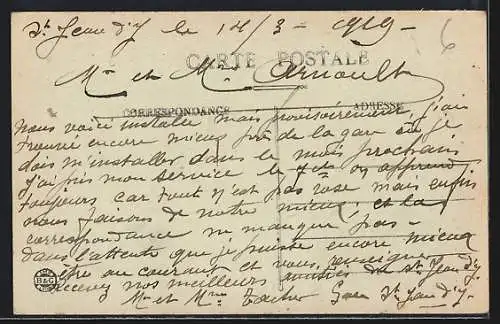 St Jean d'Y le 14/3 - 1919 - 6
CARTE POSTALE
Mr et Me Arnoult
CORRESPONDANCE ADRESSE
Nous voici installé mais provisoirement j'ai
trouvé encore mieux près de la gare où je
dois m'installer dans le mois prochain
j'ai pris mon service le on apprend
toujours car tout n'est pas rose mais enfin
nous faisons de notre mieux; et la
correspondance ne manque pas -
Dans l'attente que je puisse encore mieux
être au courant et vous renseigner
recevez nos meilleurs amitiés de St Jean d'y
B&G
Mr et Mme Gare St Jean d'y